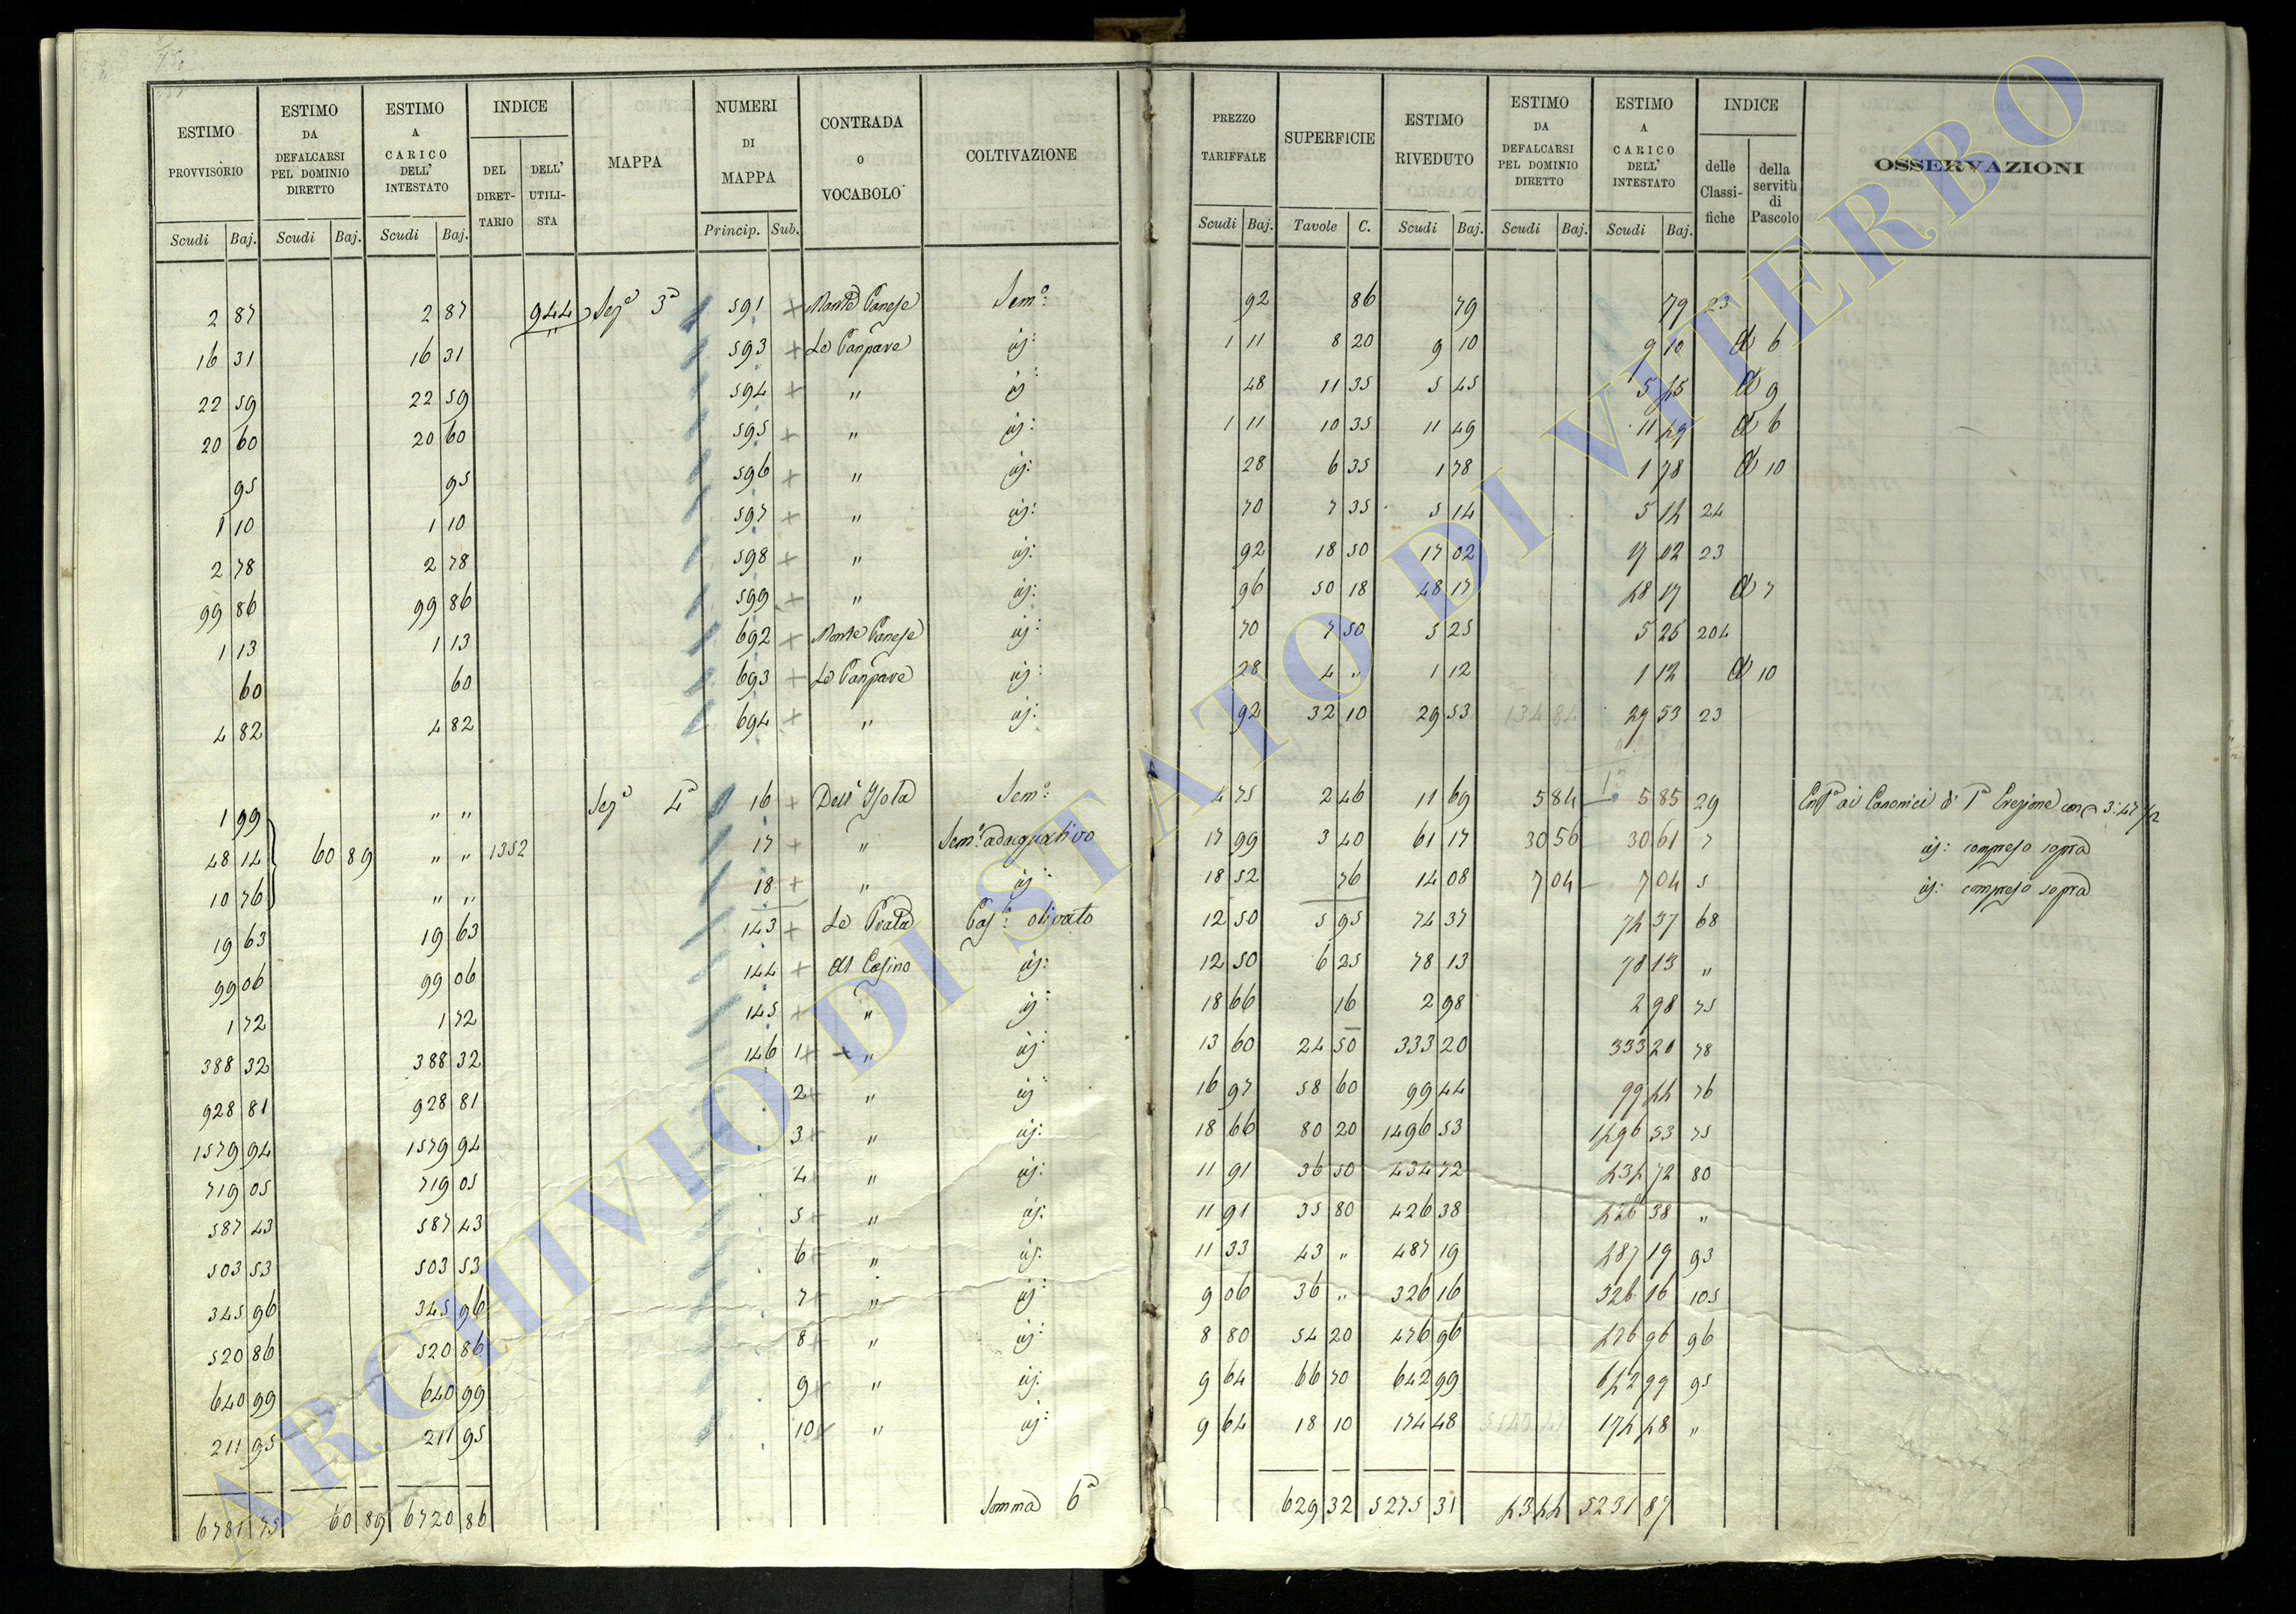 ESTIMO PROVVISORIO | ESTIMO DA DEFALCARSI PEL DOMINIO DIRETTO | ESTIMO A CARICO DELL' INTESTATO | INDICE | MAPPA | NUMERI DI MAPPA | CONTRADA O VOCABOLO | COLTIVAZIONE | PREZZO TARIFFALE | SUPERFICIE | ESTIMO RIVEDUTO | ESTIMO DA DEFALCARSI PEL DOMINIO DIRETTO | ESTIMO A CARICO DELL' INTESTATO | INDICE | OSSERVAZIONI
DEL DIRETTARIO | DELL' UTILISTA | delle Classifiche | della servitù di Pascolo
Scudi | Baj. | Scudi | Baj. | Scudi | Baj. | Princip. | Sub. | Scudi | Baj. | Tavole | C. | Scudi | Baj. | Scudi | Baj. | Scudi | Baj.
2 87 | 2 87 | 944 | Sez.e 3a | 591 + | Monte Canese | Sem.o: | 92 | 86 | 79 | 79 | 23
16 31 | 16 31 | " | 593 + | Le Canpare | id: | 1 11 | 8 20 | 9 10 | 9 10 | A 6
22 59 | 22 59 | 594 + | " | id: | 48 | 11 35 | 5 45 | 5 45 | A 9
20 60 | 20 60 | 595 + | " | id: | 1 11 | 10 35 | 11 49 | 11 49 | A 6
95 | 95 | 596 + | " | id: | 28 | 6 35 | 1 78 | 1 78 | A 10
1 10 | 1 10 | 597 + | " | id: | 70 | 7 35 | 5 14 | 5 14 | 24
2 78 | 2 78 | 598 + | " | id: | 92 | 18 50 | 17 02 | 17 02 | 23
99 86 | 99 86 | 599 + | " | id: | 96 | 50 18 | 48 17 | 48 17 | A 7
1 13 | 1 13 | 692 + | Monte Canese | id: | 70 | 7 50 | 5 25 | 5 25 | 204
60 | 60 | 693 + | Le Canpare | id: | 28 | 4 " | 1 12 | 1 12 | A 10
4 82 | 4 82 | 694 + | " | id: | 92 | 32 10 | 29 53 | 134 84 | 29 53 | 23
1 99 | " " | Sez.e 4a | 16 + | Dell' Isola | Sem.o: | 4 75 | 2 46 | 11 69 | 5 84 | 5 85 | 29 | ai Canonici di 1a Erezione con 3:47 1/2
48 14 | 60 89 | " " | 1352 | 17 + | " | Sem.o adacquativo | 17 99 | 3 40 | 61 17 | 30 56 | 30 61 | 7 | id: compreso sopra
10 76 | " " | 18 + | " | id: | 18 52 | 76 | 14 08 | 7 04 | 7 04 | 5 | id: compreso sopra
19 63 | 19 63 | 143 + | Le Prata | Pas.o: olivato | 12 50 | 5 95 | 74 37 | 74 37 | 68
99 06 | 99 06 | 144 + | Al Casino | id: | 12 50 | 6 25 | 78 13 | 78 13 | "
1 72 | 1 72 | 145 + | " | id: | 18 66 | 16 | 2 98 | 2 98 | 75
388 32 | 388 32 | 146 | 1 + | + " | id: | 13 60 | 24 50 | 333 20 | 333 20 | 78
928 81 | 928 81 | 2 + | " | id: | 16 97 | 58 60 | 99 44 | 99 44 | 76
1579 94 | 1579 94 | 3 + | " | id: | 18 66 | 80 20 | 1496 53 | 1496 53 | 75
719 05 | 719 05 | 4 + | " | id: | 11 91 | 36 50 | 434 72 | 434 72 | 80
587 43 | 587 43 | 5 + | " | id: | 11 91 | 35 80 | 426 38 | 426 38 | "
503 53 | 503 53 | 6 + | " | id: | 11 33 | 43 " | 487 19 | 487 19 | 93
345 96 | 345 96 | 7 + | " | id: | 9 06 | 36 " | 326 16 | 326 16 | 105
520 86 | 520 86 | 8 + | " | id: | 8 80 | 54 20 | 476 96 | 476 96 | 96
640 99 | 640 99 | 9 + | " | id: | 9 64 | 66 70 | 642 99 | 642 99 | 95
211 95 | 211 95 | 10 + | " | id: | 9 64 | 18 10 | 174 48 | 174 48 | "
6781 75 | 60 89 | 6720 86 | Somma 6a | 629 32 | 5275 31 | 43 44 | 5231 87
ARCHIVIO DI STATO DI VITERBO